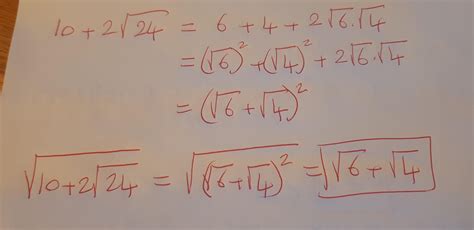 10 + 2√24 = 6 + 4 + 2√6.√4
= (√6)² + (√4)² + 2√6.√4
= (√6 + √4)²
√(10 + 2√24) = √((√6 + √4)²) = √√6 + √4